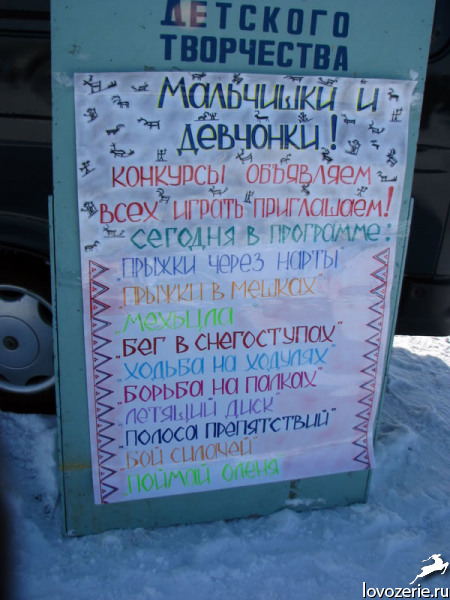 ДЕТСКОГО
ТВОРЧЕСТВА
Мальчишки и
девчонки!
конкурсы объявляем
всех играть приглашаем!
сегодня в программе:
"Прыжки через нарты"
"Прыжки в мешках"
"Мехыцла"
"Бег в снегоступах"
"Ходьба на ходулях"
"Борьба на палках"
"Летящий диск"
"Полоса препятствий"
"Бой силачей"
"Поймай оленя
lovozerie.ru